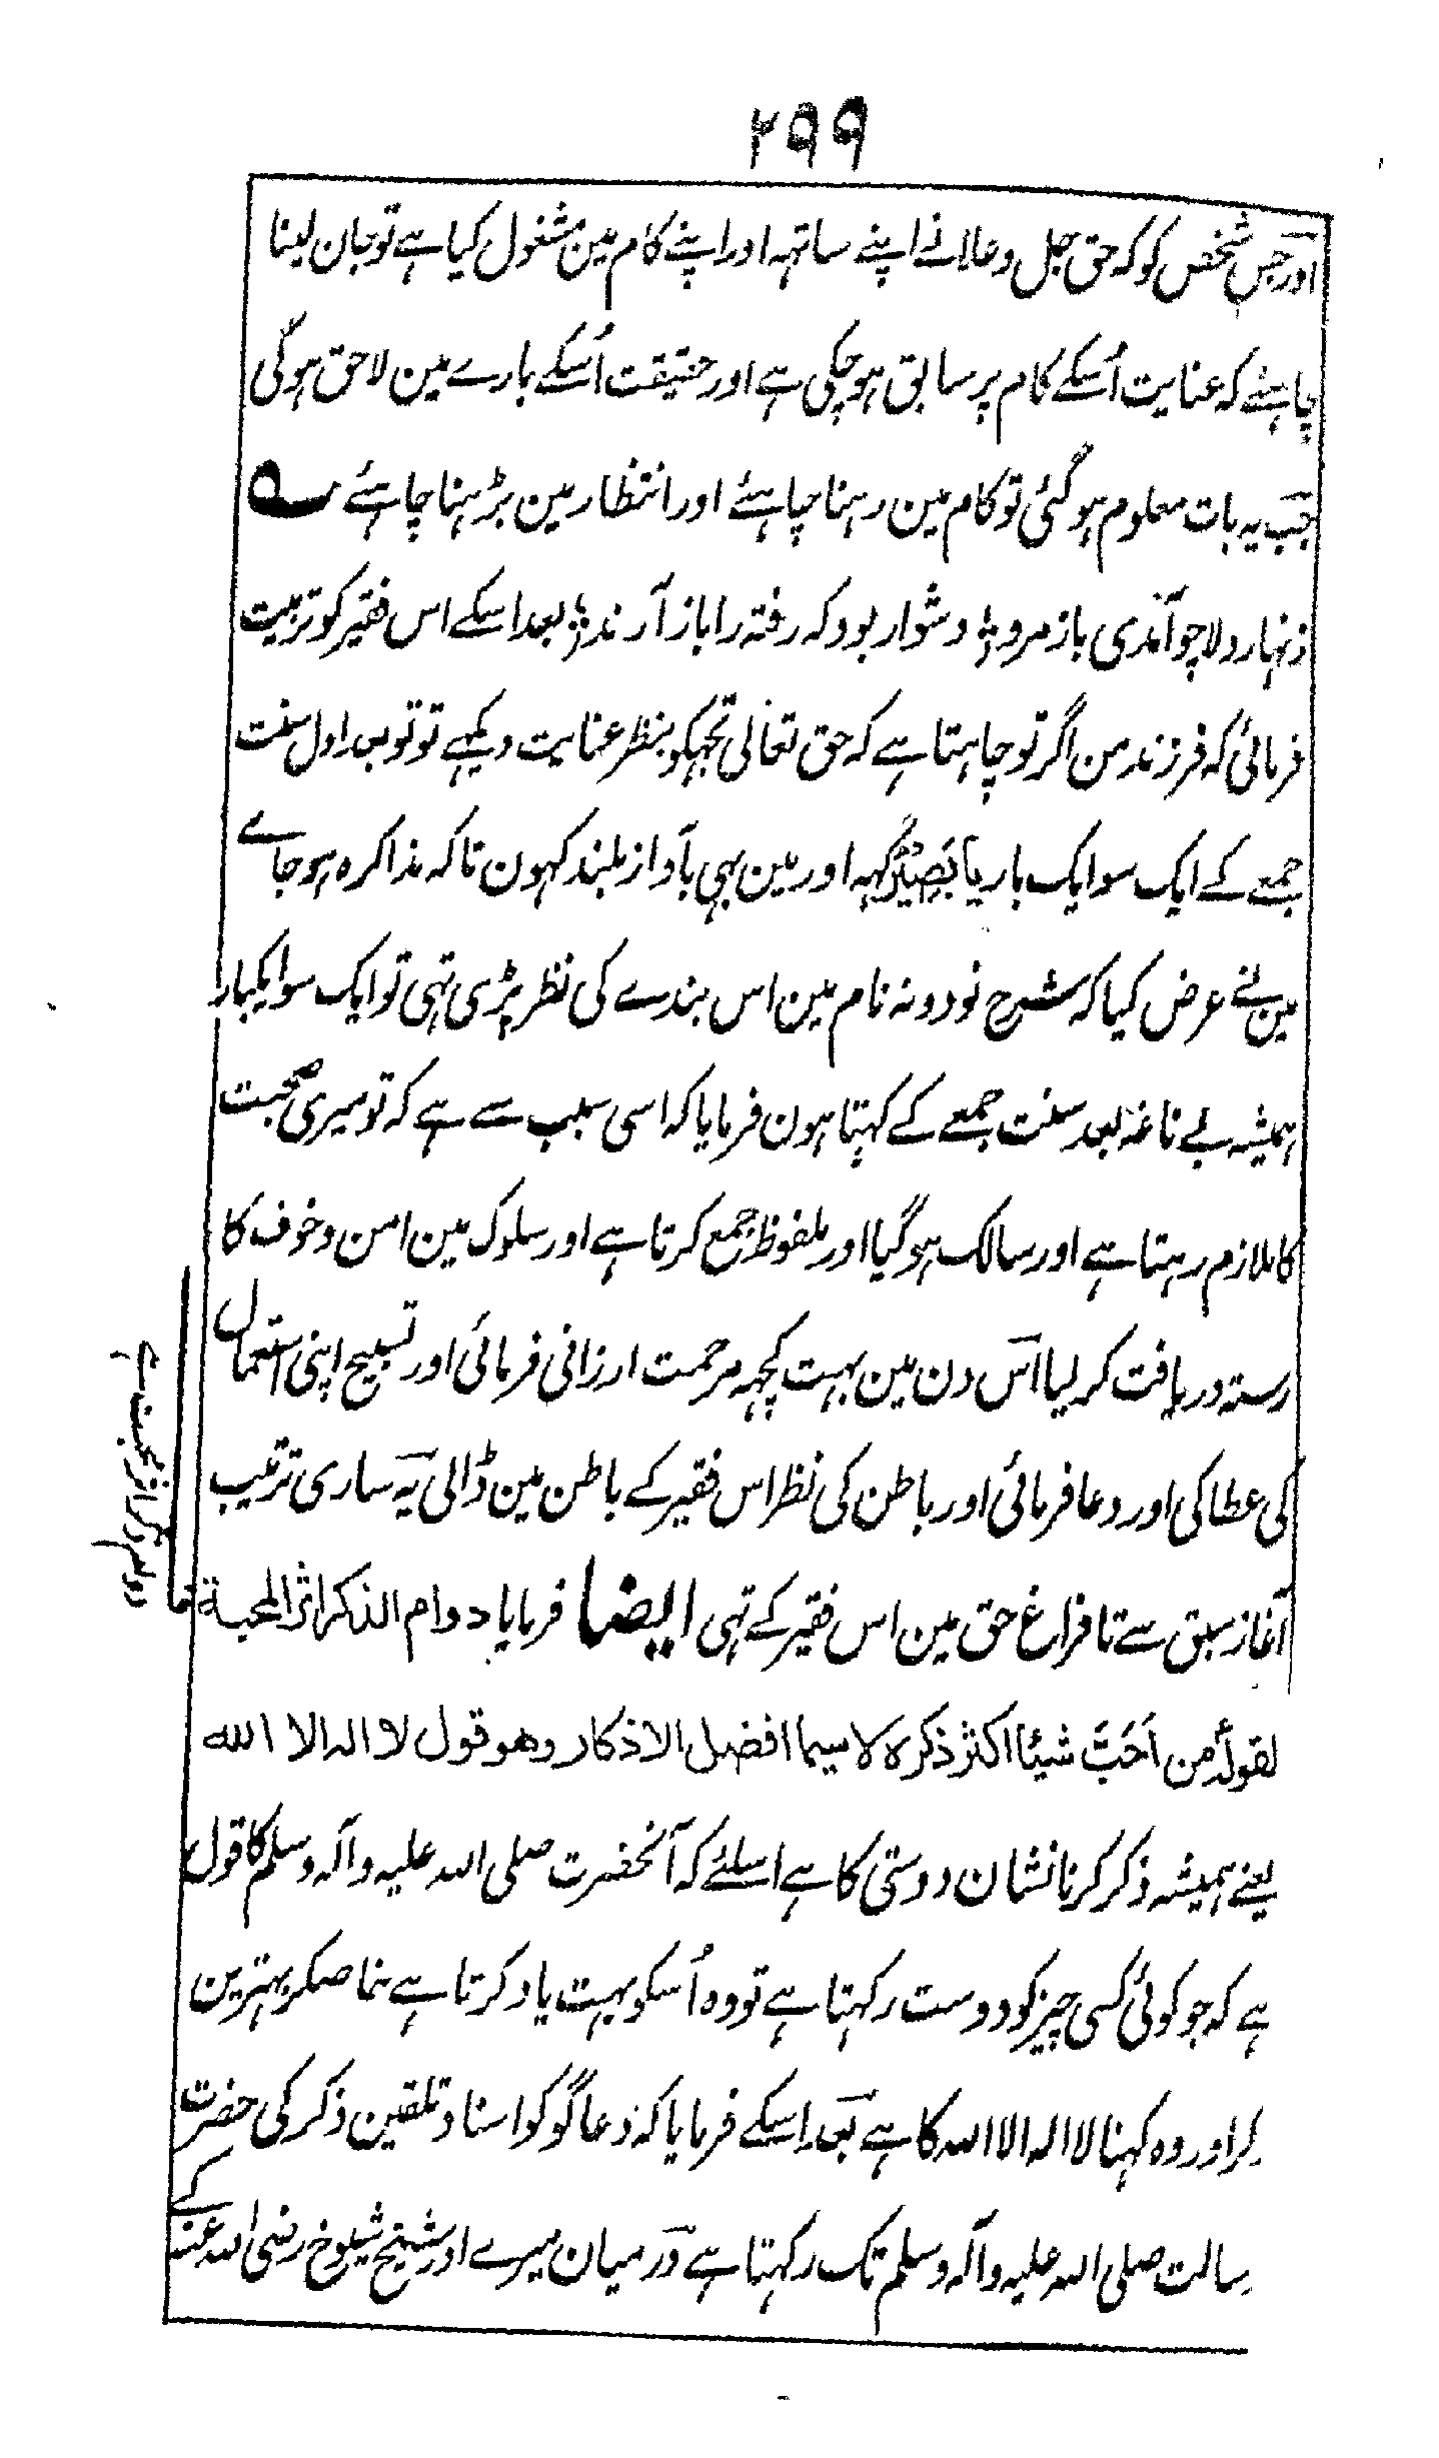 ۲۹۹
اور جس شخص کو کہ حق جل وعلا نے اپنے ساتہہ اور اپنے کام مین مشغول کیا ہے تو جان لینا
چاہئے کہ عنایت اُسکے کام پر سابق ہوچکی ہے اور حقیقت اُسکے بارے مین لاحق ہوگی
جب یہ بات معلوم ہوگئی تو کام مین رہنا چاہئے اور انتظار مین بڑہنا چاہئے ؎
زنہار دلا چو آمدی باز مرو ؛ دشوار بود کہ رفتہ را باز آرند ؛ بعد اسکے اس فقیر کو تربیت
فرمائی کہ فرزند من اگر تو چاہتا ہے کہ حق تعالٰی تجہکو بنظر عنایت دیکہے تو تو بعد اول سنت
جمعے کے ایک سو ایک بار یا بَصِیْرُ کہہ اور مین بہی بآواز بلند کہون تاکہ مذاکرہ ہوجاے
مین نے عرض کیا کہ شرح نود ونہ نام مین اس بندے کی نظر پڑی تہی تو ایک سو ایکبار
ہمیشہ بے ناغہ بعد سنت جمعے کے کہتا ہون فرمایا کہ اسی سبب سے ہے کہ تو میری صحبت
کا ملازم رہتا ہے اور سالک ہوگیا اور ملفوظ جمع کرتا ہے اور سلوک مین امن وخوف کا
رستہ دریافت کرلیا اس دن مین بہت کچہہ مرحمت ارزانی فرمائی اور تسبیح اپنی استعمال
کی عطا کی اور دعا فرمائی اور باطن کی نظر اس فقیر کے باطن مین ڈالی یہ ساری ترتیب
آغاز سبق سے تا فراغ حق مین اس فقیر کے تہی ایضا فرمایا دوام الذکر اثر المحبة
لقولہ من اَحَبَّ شیئا اکثر ذکرہ لا سیما افضل الاذکار وھو قول لا الہ الا اللہ
یعنے ہمیشہ ذکر کرنا نشان دوستی کا ہے اسلئے کہ آنحضرت صلی اللہ علیہ وآلہ وسلم کا قول
ہے کہ جو کوئی کسی چیز کو دوست رکہتا ہے تو وہ اُسکو بہت یاد کرتا ہے خاصکر بہترین
کر اور وہ کہنا لا الہ الا اللہ کا ہے بعد اسکے فرمایا کہ دعاگو کو اسناد تلقین ذکر کی حضرت
سالت صلی اللہ علیہ وآلہ وسلم تک رکہتا ہے درمیان میرے اور شیخ شیوخ رضی اللہ عنہ کے
دوام ذکر اثر محبت ہے